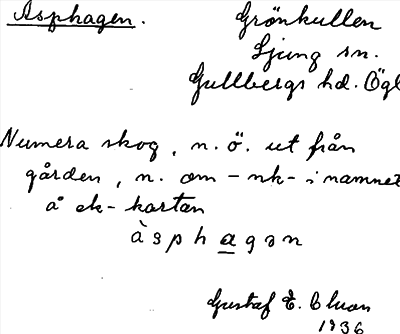 Asphagen.
Grönkullen
Ljung sn.
Gullbergs hd. Ögl
Numera skog, n. ö. ut från
gården, n. om - nk- i namnet
å ek-kartan
àsphagən
Gustaf E. Cluan
1936